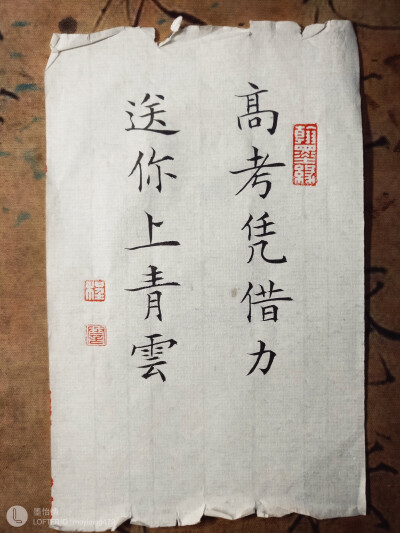 高考凭借力
送你上青雲
翰墨缘
LOFTER